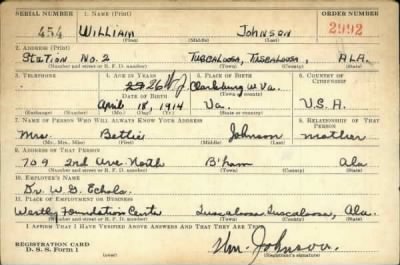 SERIAL NUMBER 1. NAME (Print) ORDER NUMBER
454 WILLIAM JOHNSON 2992
(First) (Middle) (Last)
2. ADDRESS (Print)
STATION NO. 2 TUSCALOOSA, TUSCALOOSA, ALA.
(Number and street or R. F. D. number) (Town) (County) (State)
3. TELEPHONE 4. AGE IN YEARS 5. PLACE OF BIRTH 6. COUNTRY OF CITIZENSHIP
26 Clarksburg W. Va.
DATE OF BIRTH (Town or county)
April 18, 1914 Va. U.S.A.
(Exchange) (Number) (Mo.) (Day) (Yr.) (State or country)
7. NAME OF PERSON WHO WILL ALWAYS KNOW YOUR ADDRESS 8. RELATIONSHIP OF THAT PERSON
Mrs. Bettie Johnson mother
(Mr., Mrs., Miss) (First) (Middle) (Last)
9. ADDRESS OF THAT PERSON
709 2nd Ave. North B'ham Ala
(Number and street or R. F. D. number) (Town) (County) (State)
10. EMPLOYER'S NAME
Dr. W. G. Echols
11. PLACE OF EMPLOYMENT OR BUSINESS
Foundation Tuscaloosa Tuscaloosa, Ala.
(Number and street or R. F. D. number) (Town) (County) (State)
I AFFIRM THAT I HAVE VERIFIED ABOVE ANSWERS AND THAT THEY ARE TRUE.
REGISTRATION CARD
D. S. S. Form 1
Wm. Johnson
(Registrant's signature)